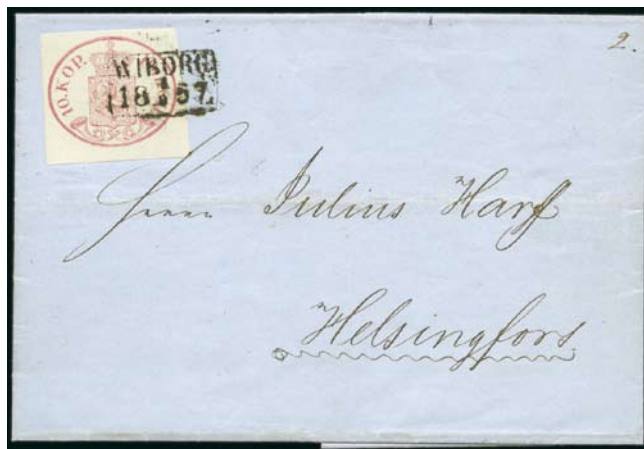 2.
10.KOP.
WIBORG
18 57
Herrn Julius
Helsingfors